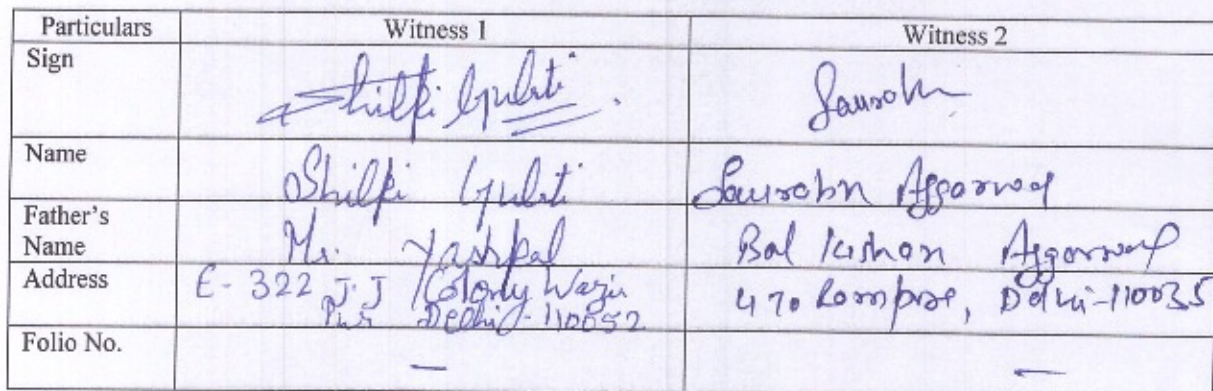 Particulars Witness 1 Witness 2
Sign Shilpi Gulati Saurabh
Name Shilpi Gulati Saurabh Aggarwal
Father's
Name Mr. Yashpal Bal Kishan Aggarwal
Address E-322 J.J Colony Wazir 470 Rampura, Delhi-110035
Pur Delhi-110052
Folio No. — —